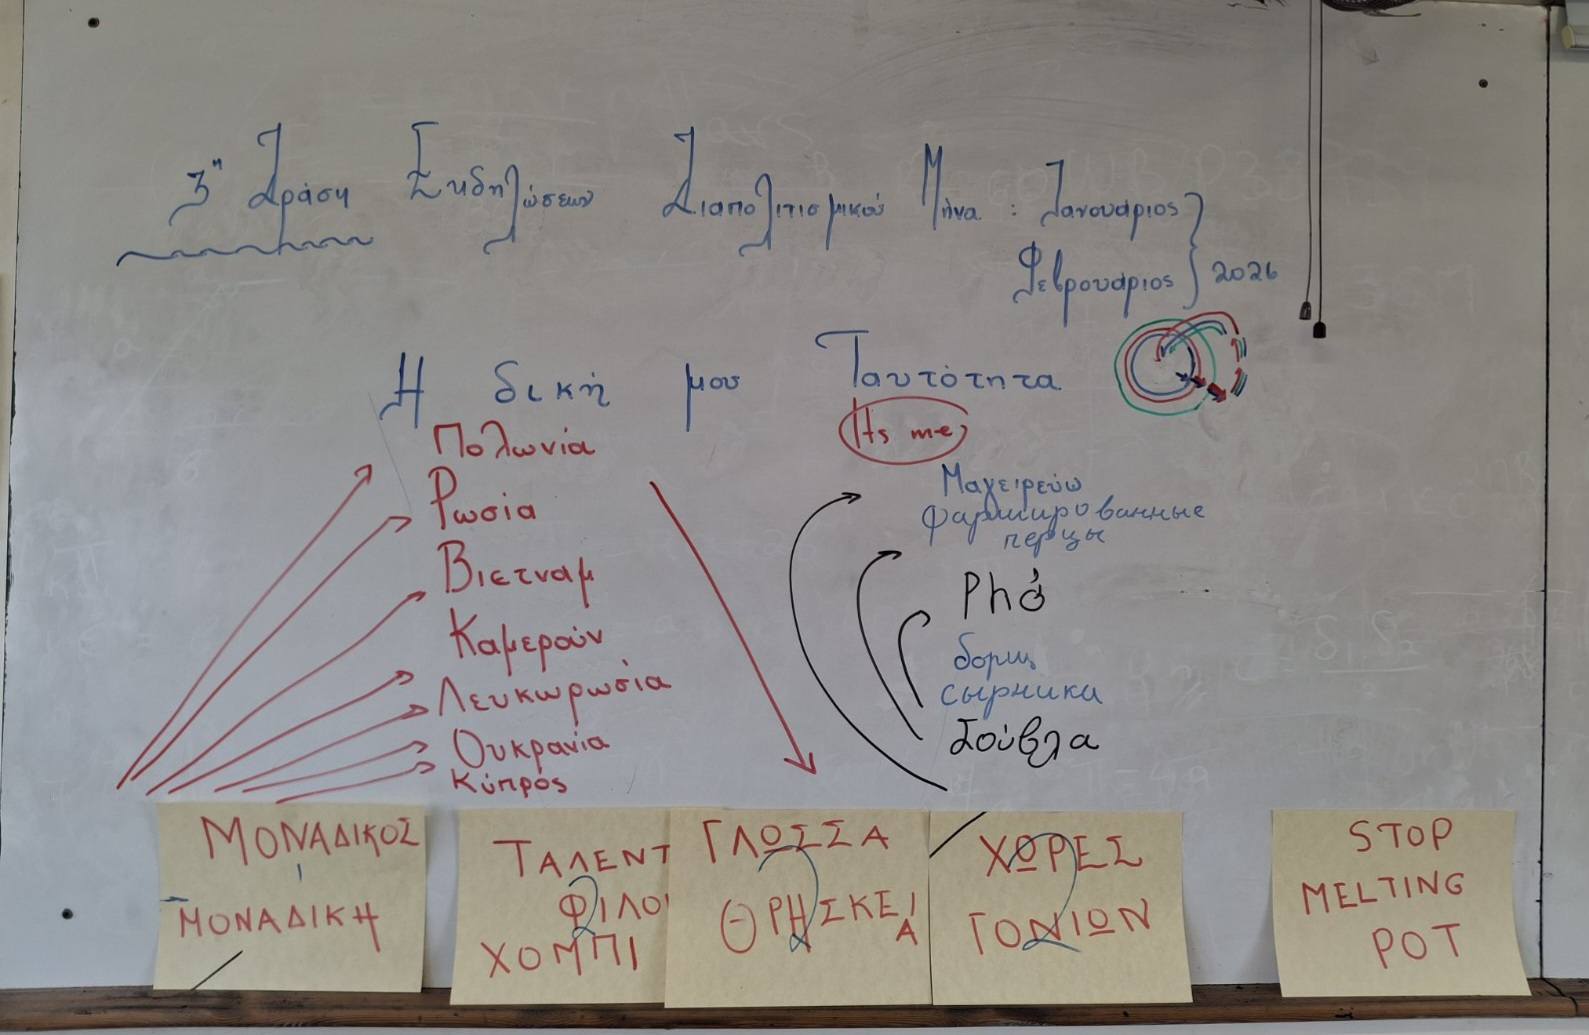 3η Δράση Εκδηλώσεων Διαπολιτισμικού Μήνα : Ιανουάριος
Φεβρουάριος } 2026
Η δική μου Ταυτότητα
Its me
Πολωνία
Ρωσία
Βιετναμ
Καμερούν
Λευκωρωσία
Ουκρανία
Κύπρος
Μαγειρεύω
фаршированные
перцы
Phở
борщ
сырники
Σούβλα
ΜΟΝΑΔΙΚΟΣ
ΜΟΝΑΔΙΚΗ
ΤΑΛΕΝΤ
ΦΙΛΟΙ
ΧΟΜΠΙ
ΓΛΩΣΣΑ
ΘΡΗΣΚΕΙΑ
ΧΩΡΕΣ
ΓΟΝΙΩΝ
STOP
MELTING
POT